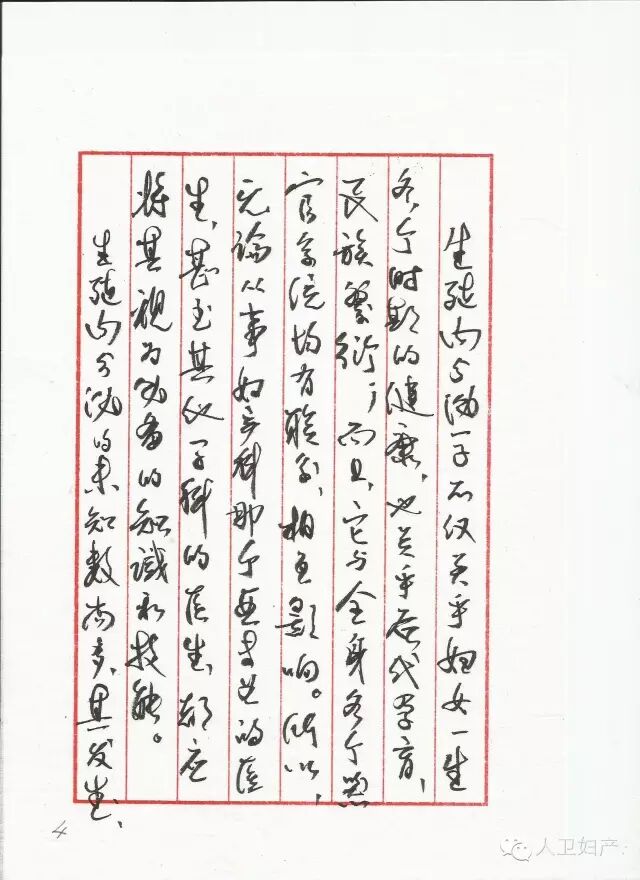 生殖内分泌学不仅关乎妇女一生
各个时期的健康，也关乎后代孕育，
民族繁衍；而且，它与全身各个器
官系统均有联系，相互影响。所以，
无论从事妇产科那个亚专业的医
生，甚至其他学科的医生，都应
将其视为必备的知识和技能。
生殖内分泌的未知数尚多，其发生、
4
人卫妇产